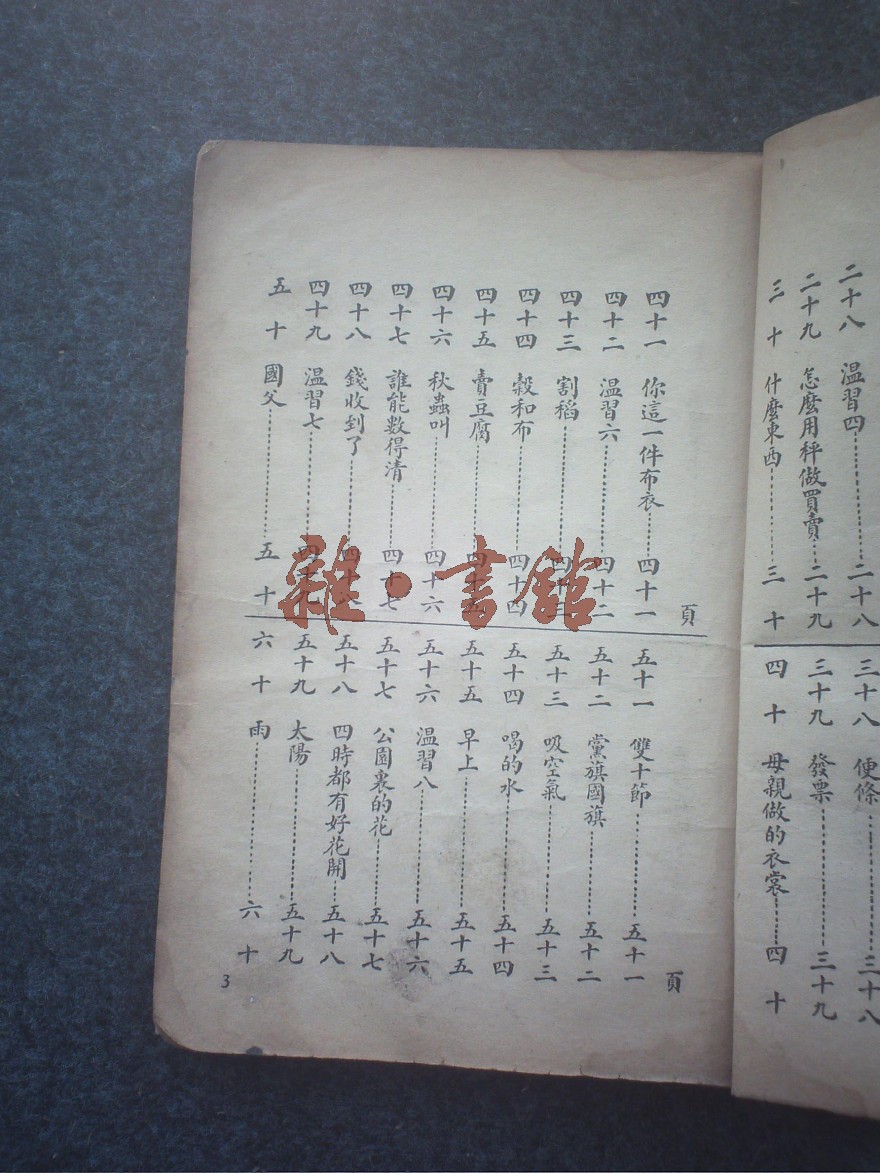 二十八 温習四……二十八
二十九 怎麼用秤做買賣……二十九
三十 什麼東西……三十
三十八 便條……三十八
三十九 發票……三十九
四十 母親做的衣裳……四十
頁
四十一 你這一件布衣……四十一
四十二 温習六……四十二
四十三 割稻……四十三
四十四 穀和布……四十四
四十五 賣豆腐……四十五
四十六 秋蟲叫……四十六
四十七 誰能數得清……四十七
四十八 錢收到了……四十八
四十九 温習七……四十九
五十 國父……五十
頁
五十一 雙十節……五十一
五十二 黨旗國旗……五十二
五十三 吸空氣……五十三
五十四 喝的水……五十四
五十五 早上……五十五
五十六 温習八……五十六
五十七 公園裏的花……五十七
五十八 四時都有好花開……五十八
五十九 太陽……五十九
六十 雨……六十
3
雜·書館